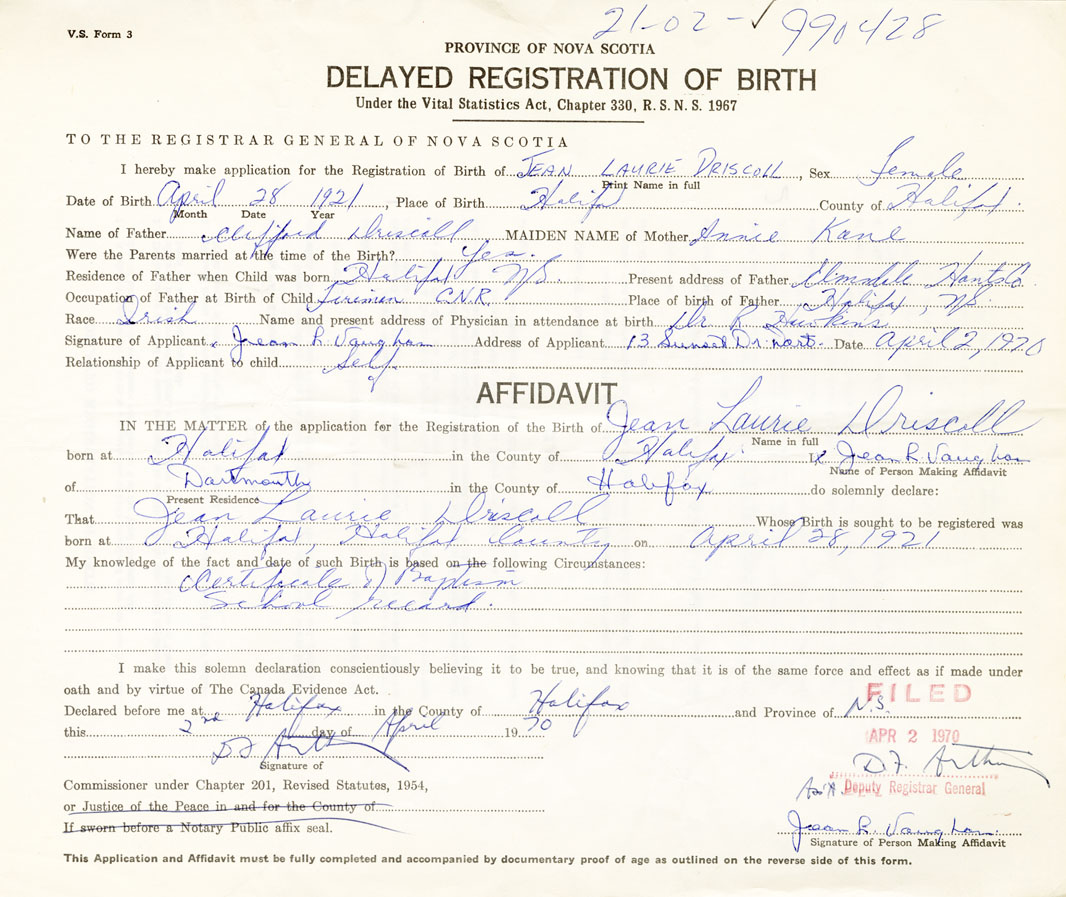 21-02- ✓ 990428
V.S. Form 3
PROVINCE OF NOVA SCOTIA
DELAYED REGISTRATION OF BIRTH
Under the Vital Statistics Act, Chapter 330, R. S. N. S. 1967
TO THE REGISTRAR GENERAL OF NOVA SCOTIA
I hereby make application for the Registration of Birth of JEAN LAURIE DRISCOLL, Sex Female
Print Name in full
Date of Birth April 28 1921, Place of Birth Halifax County of Halifax
Month Date Year
Name of Father Clifford Driscoll MAIDEN NAME of Mother Annie Kane
Were the Parents married at the time of the Birth? Yes.
Residence of Father when Child was born Halifax NS. Present address of Father Elmsdale Hants Co
Occupation of Father at Birth of Child Firemen C.N.R. Place of birth of Father Halifax, NS.
Race Irish Name and present address of Physician in attendance at birth Dr R
Signature of Applicant x Jean L Vaughan Address of Applicant 13 Sunset Dr. Dart. Date April 2, 1970
Relationship of Applicant to child Self
AFFIDAVIT
IN THE MATTER of the application for the Registration of the Birth of Jean Laurie Driscoll
Name in full
born at Halifax in the County of Halifax I x Jean L. Vaughan
Name of Person Making Affidavit
of Dartmouth in the County of Halifax do solemnly declare:
Present Residence
That Jean Laurie Driscoll Whose Birth is sought to be registered was
born at Halifax, Halifax County on April 28, 1921
My knowledge of the fact and date of such Birth is based on the following Circumstances:
Certificate of Baptism
School record.
I make this solemn declaration conscientiously believing it to be true, and knowing that it is of the same force and effect as if made under
oath and by virtue of The Canada Evidence Act.
FILED
Declared before me at Halifax in the County of Halifax and Province of N.S.
this 2nd day of April 1970
APR 2 1970
D F Arthur
D. F. Arthur
Signature of
Deputy Registrar General
Commissioner under Chapter 201, Revised Statutes, 1954,
or Justice of the Peace in and for the County of
If sworn before a Notary Public affix seal.
Jean L. Vaughan.
Signature of Person Making Affidavit
This Application and Affidavit must be fully completed and accompanied by documentary proof of age as outlined on the reverse side of this form.